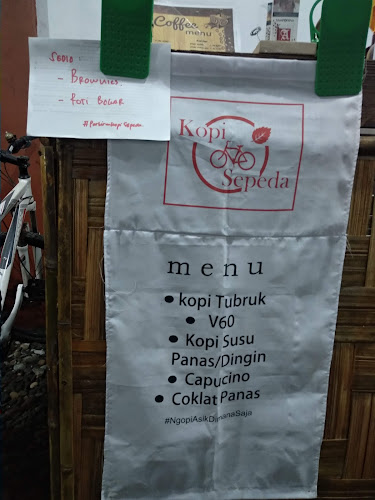 Coffee
menu
SEDIA
- BROWNIES
- ROTI BAKAR
Kopi
Sepeda
menu
• kopi Tubruk
• V60
• Kopi Susu
Panas/Dingin
• Capucino
• Coklat Panas
#NgopiAsikDimanaSaja